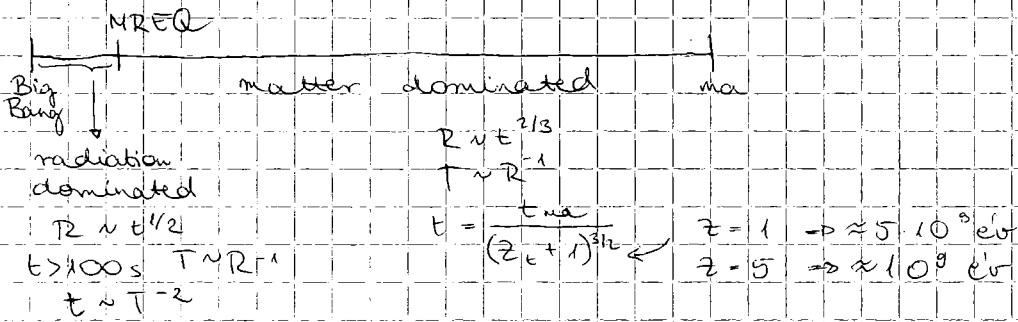 MREQ
Big Bang
matter dominated
ma
radiation dominated
R ~ t^{1/2}
t > 100 s T ~ R^{-1}
t ~ T^{-2}
R ~ t^{2/3}
T ~ R^{-1}
t = \frac{t_{ma}}{(z_t + 1)^{3/2}}
z = 1 => ≈ 5 10^9 év
z = 5 => ≈ 10^9 év